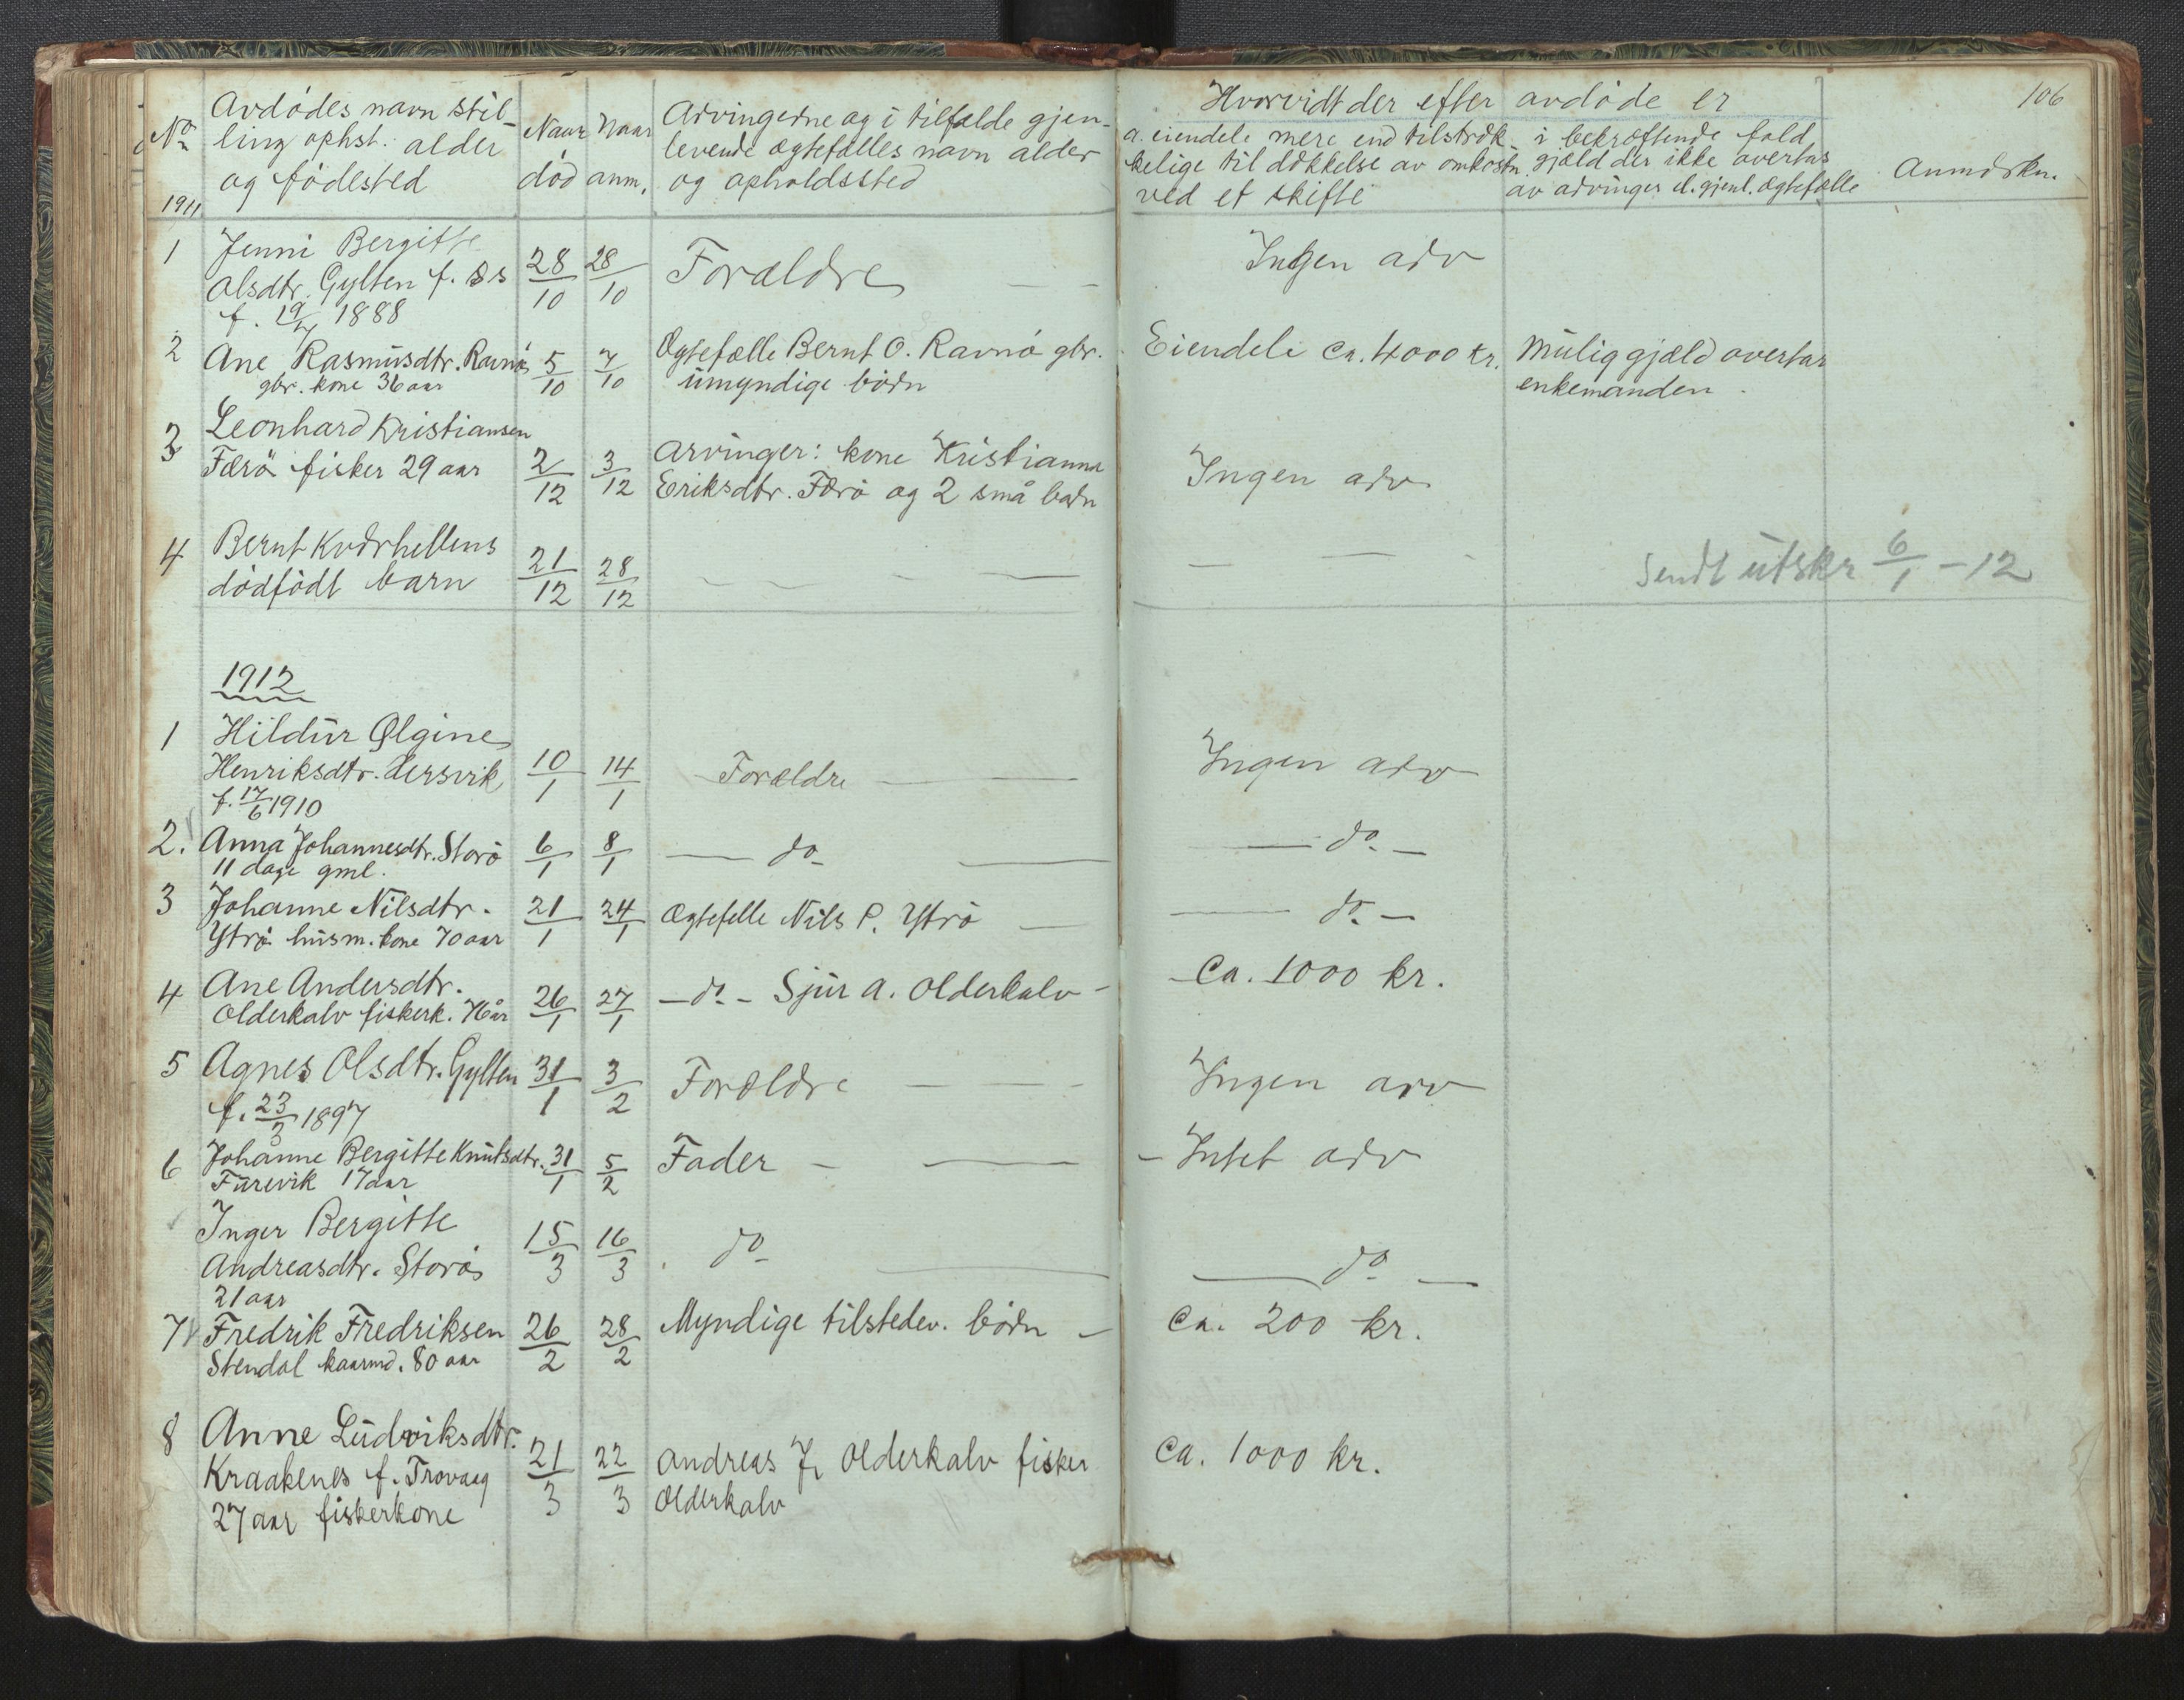 106
No
1911
Avdødes navn stil-
ling ophst: alder
og fødested
Naar
død
Naar
anm.
Arvingerne og i tilfælde gjen-
levende ægtefælles navn alder
og opholdssted
Hvorvidt der efter avdøde er
a. eiendele mere end tilstræk-
kelige til dækkelse av omkostn.
ved et skifte
i bekræftende fald
gjæld der ikke overtas
av arvinger el. gjenl. ægtefælle
Anmærkn.
1 Jenni Bergitte
Olsdtr. Gylten f. ss 28/10 28/10 Forældre — — Ingen arv
f. 19/7 1888
2 Ane Rasmusdtr. Ravnø 5/10 7/10 Ægtefælle Bernt O. Ravnø gbr. Eiendele ca. 4000 kr. Mulig gjæld overtar
gbr. kone 36 aar umyndige børn enkemanden
3 Leonhard Kristiansen
Færø fisker 29 aar 2/12 3/12 Arvinger: kone Kristianna Ingen arv
Eriksdtr. Færø og 2 små børn
4 Bernt Kværhellens
dødfødt barn 21/12 28/12 — — — — Sendt utskr 6/1 - 12
1912
1 Hildur Olgine
Henriksdtr. Hersvik 10/1 14/1 Forældre — — Ingen arv
f. 17/6 1910
2. Anna Johannesdtr. Storø 6/1 8/1 — do — — do —
11 dage gml.
3 Johanne Nilsdtr. 21/1 24/1 Ægtefelle Nils P. Ytrø — — do —
Ytrø husm. kone 70 aar
4 Ane Andersdtr. 26/1 27/1 — do — Sjur A. Olderkalv - - Ca. 1000 kr.
Olderkalv fiskerk. 76 år
5 Agnes Olsdtr. Gylten 31/1 3/2 Forældre — — Ingen arv
f. 23/3 1897
6 Johanne Bergitte Knutsdtr. 31/1 5/2 Fader — — - Intet arv
Furevik 17 aar
Inger Bergitte
Andreasdtr. Storø 15/3 16/3 do — — do —
21 aar
7 Fredrik Fredriksen 26/2 28/2 Myndige tilstedev. børn — Ca. 200 kr.
Stendal kaarmd. 80 aar
8 Anne Ludviksdtr.
Kraakenes f. Trovaag 21/3 22/3 Andreas J. Olderkalv fisker Ca. 1000 kr.
27 aar fiskerkone Olderkalv